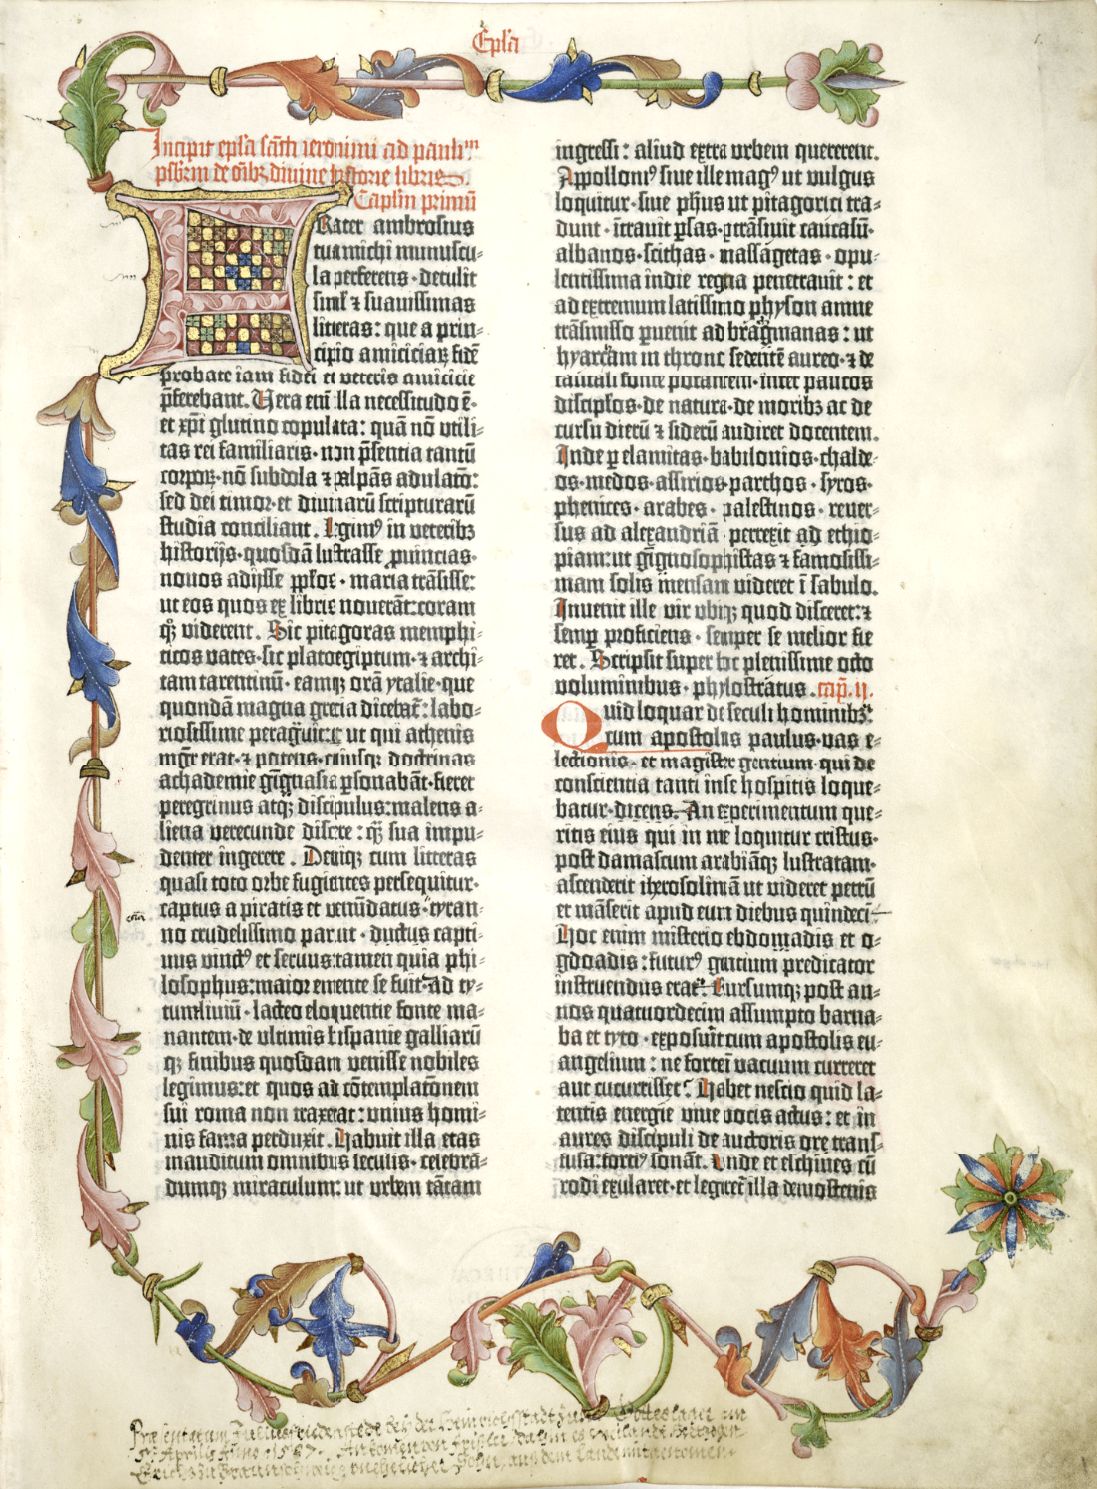 Ep̄la
Incipit ep̄la sc̄ti ieronimi ad paulinum
pr̄sbiterum de om̄ibꝫ divine historie libris.
Cap̄lm primū
Frater ambrosius
tua michi munuscu-
la perferens · detulit
siml̄ ⁊ suavissimas
litteras: que a prin-
cipio amiciciaꝝ fidē
probate iam fidei et veteris amicicie
p̄ferebant. Vera eni illa necessitudo ē·
et xp̄i glutino copulata: quā nō utili-
tas rei familiaris· non p̄sentia tantū
corpoꝝ· nō subdola ⁊ palpās adulatō:
sed dei timor· et divinarū scripturarū
studia conciliant. Legimꝰ in veteribꝫ
historijs· quosdā lustrasse ꝓvincias·
novos adijsse pp̄los · maria trāsisse:
ut eos quos ex libris noverāt: coram
qꝫ viderent. Sic pitagoras memphi-
ticos vates· sic plato egiptum· ⁊ archi-
tam tarentinū· eamqꝫ orā ytalie· que
quondā magna grecia dicebat̄: labo-
riosissime peragravit: ut qui athenis
mgr̄ erat· ⁊ potens· cuiusqꝫ doctrinas
achademie gignasia ꝑsonabāt· fieret
peregrinus atqꝫ discipulus: malens a-
liena verecunde discere: qꝫ sua impu-
denter ingerere. Deniqꝫ cum litteras
quasi toto orbe fugientes persequitur·
captus a piratis et venūdatus· tyran-
no crudelissimo paruit · ductus capti-
vus vinctꝰ et servus: tamen quia phi-
losophus: maior emente se fuit· Ad ty-
tumlivium · lacteo eloquentie fonte ma-
nantem· de ultimis hispanie galliarū
qꝫ finibus quosdam venisse nobiles
legimus: et quos ad cōtemplatōnem
sui roma non traxerat: unius homi-
nis fama perduxit. Habuit illa etas
inauditum omnibus seculis· celebrā-
dumqꝫ miraculum: ut urbem tātam
ingressi: aliud extra urbem quererent.
Appolloniꝰ sive ille magꝰ ut vulgus
loquitur· sive ph̄us ut pitagorici tra-
dunt · ītravit ꝑsas· ꝑtrāsivit caucasū·
albanos· scithas · massagetas · opu-
lentissima indie regna penetravit: et
ad extremum latissimo physon amne
trāsmisso pervenit ad bragmanas: ut
hyarcam in throno sedentē aureo· ⁊ de
tantali fonte potantem· inter paucos
discipl̄os· de natura· de moribꝫ ac de
cursu dierū ⁊ siderū audiret docentem.
Inde ꝑ elamitas· babilonios· chalde-
os· medos· assirios· parthos · syros·
phenices · arabes · palestinos · rever-
sus ad alexandriā perrexit ad ethio-
piam: ut gignosophistas ⁊ famosissi-
mam solis mensam videret ī sabulo.
Invenit ille vir ubiqꝫ quod disceret: ⁊
semꝑ proficiens · semper se melior fie
ret. Scripsit super hoc plenissime octo
voluminibus · phylostratus . cap̄. ij.
Quid loquar de seculi hominibꝫ:
cum apostolus paulus· vas e-
lectionis· et magister gentium· qui de
conscientia tanti in se hospitis loque-
batur· dicens. An experimentum que-
ritis eius qui in me loquitur cristus·
post damascum arabiāqꝫ lustratam·
ascenderit iherosolimā ut videret petrū
et māserit apud eum diebus quindeci-
Hoc enim misterio ebdomadis et o-
gdoadis: futurꝰ gentium predicator
instruendus erat. Rursumqꝫ post an-
nos quatuordecim assumpto barna-
ba et tyto · exposuit cum apostolis eu-
angelium: ne forte ī vacuum curreret
aut cucurrisset. Habet nescio quid la-
tentis energie vive vocis actus: et in
aures discipuli de auctoris ore trans-
fusa: fortiꝰ sonat. Unde et eschines cū
rodi exularet· et legeret̄ illa demostenis